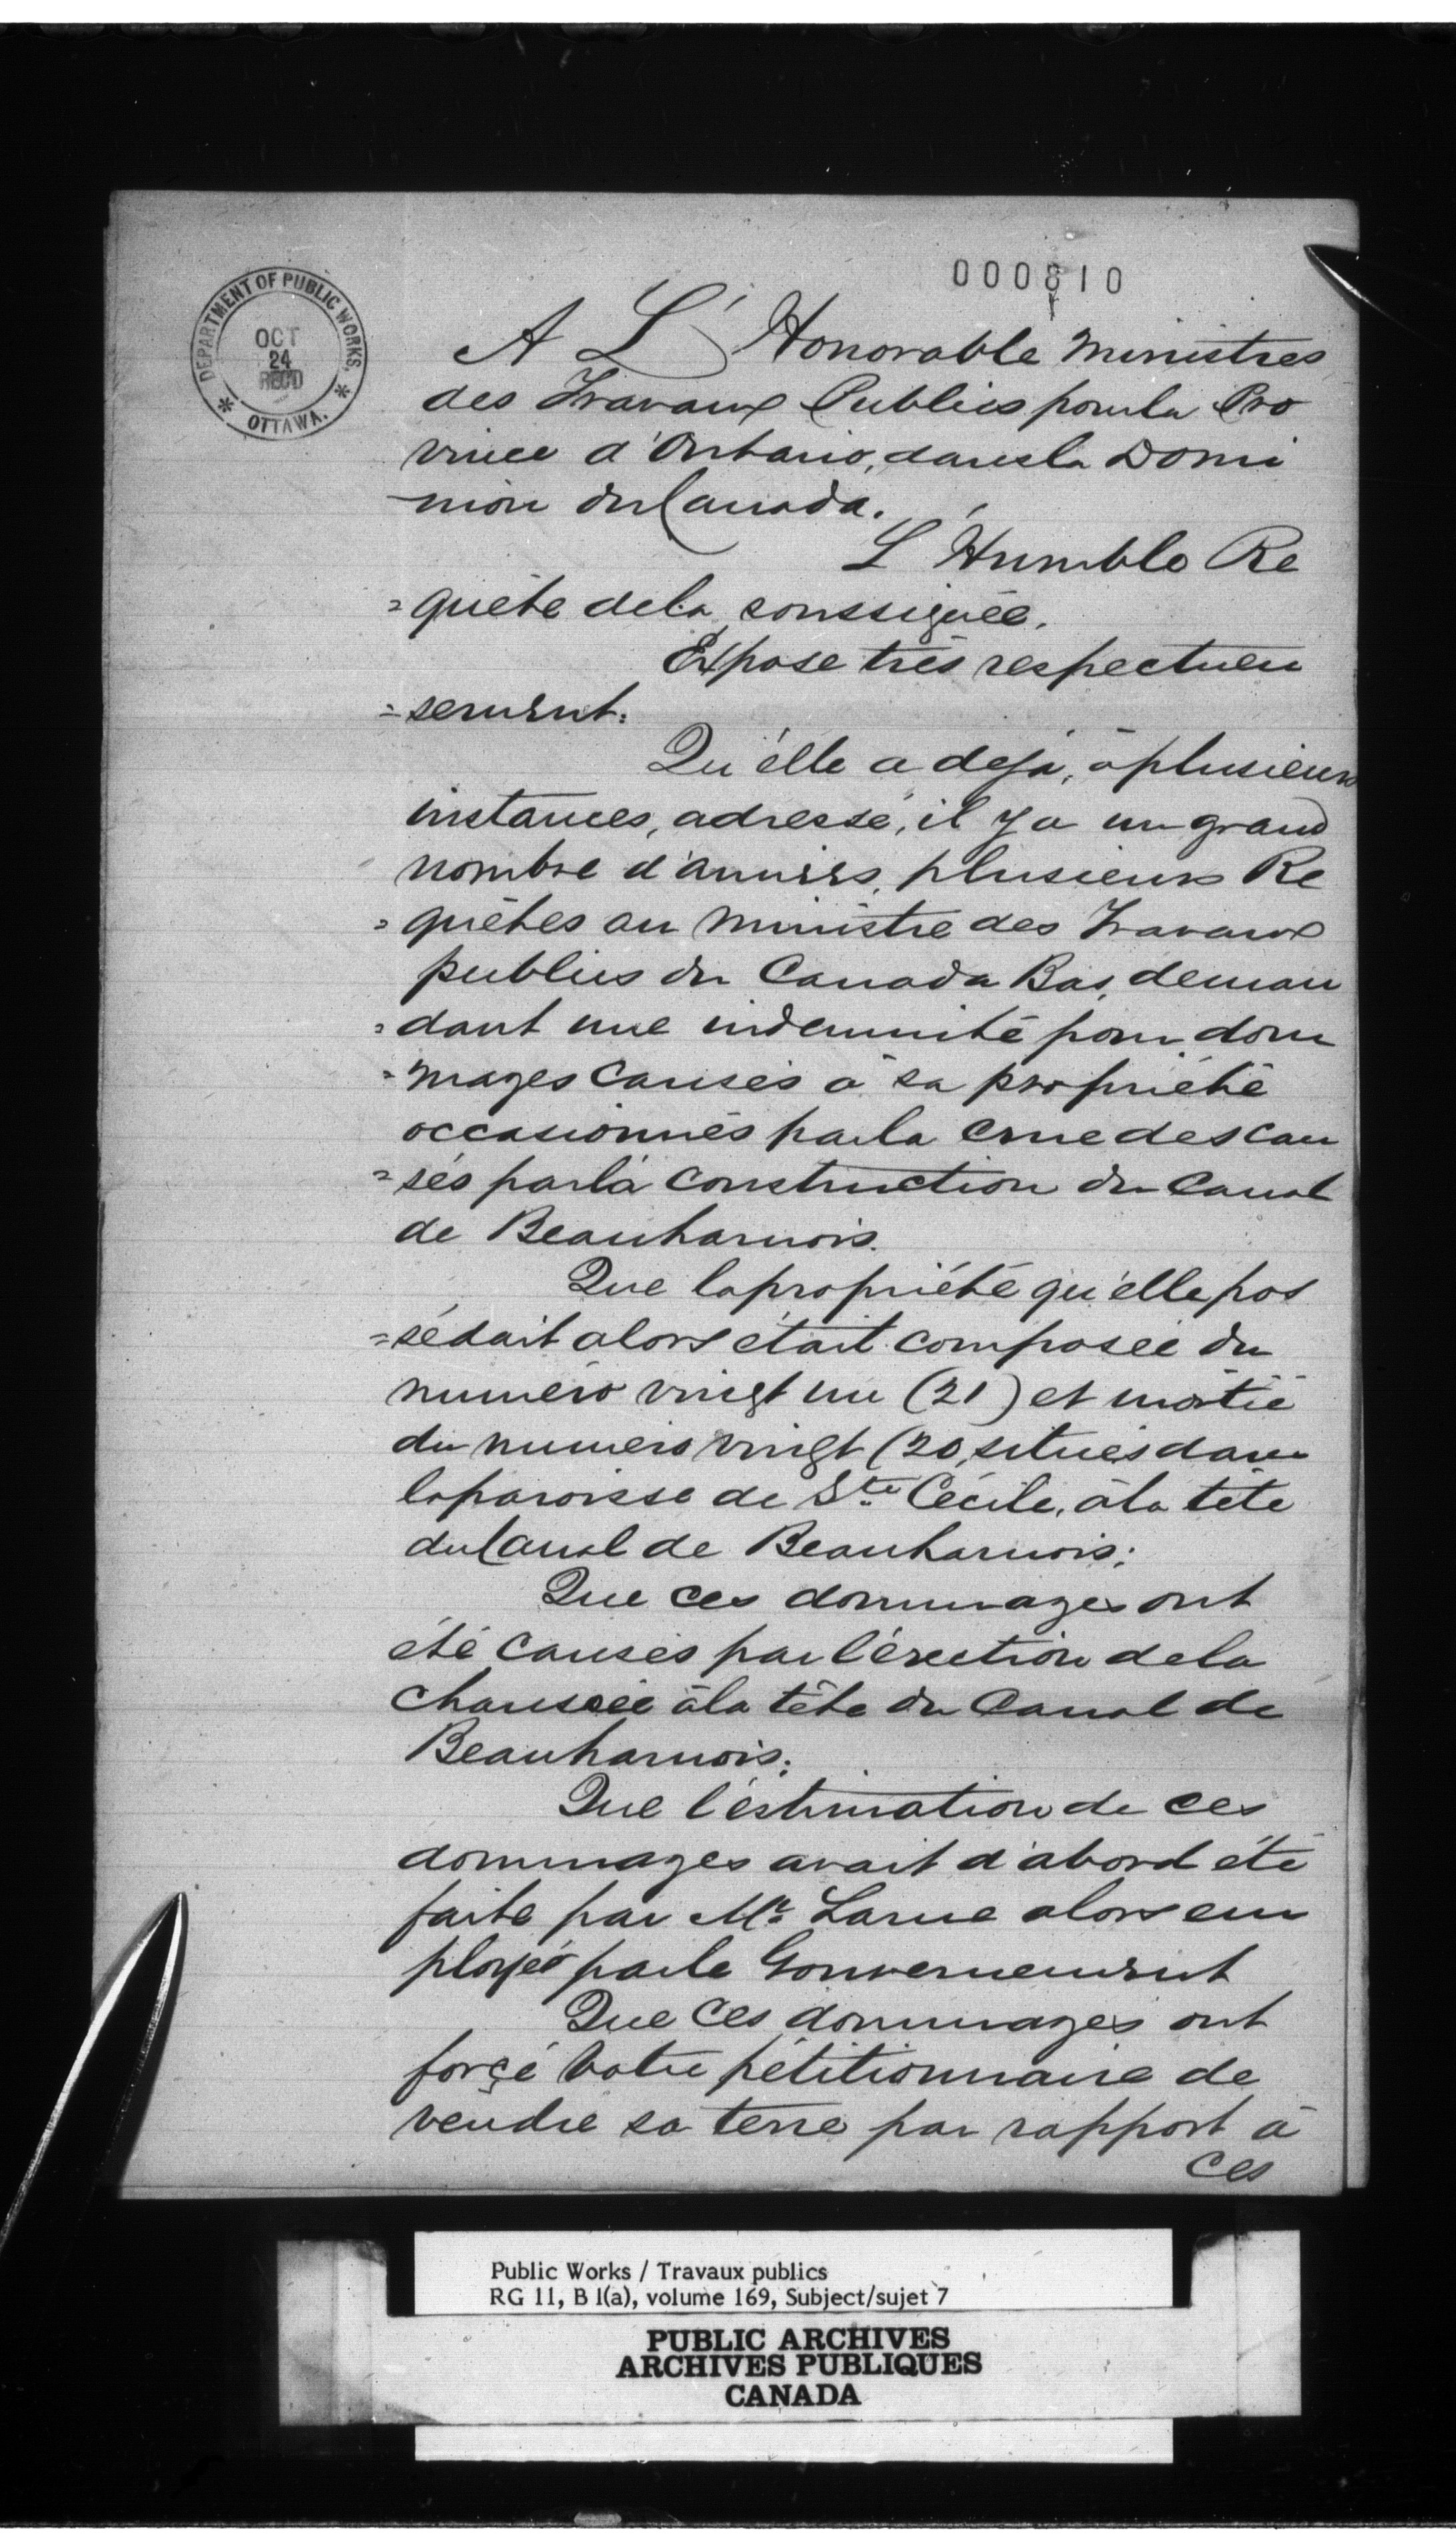 000810
DEPARTMENT OF PUBLIC WORKS.
OCT
24
REC'D
OTTAWA.
A L'Honorable Ministres
des Travaux Publics pour la Pro
vince d'Ontario, dans la Domi
-nion du Canada.
L'Humble Re
=quête de la soussignée.
Expose très respectueu
=sement:
Qu'elle a deja, à plusieurs
instances, adressé, il y a un grand
nombre d'années, plusieurs Re
=quêtes au Ministre des Travaux
publics du Canada Bas, deman
=dant une indemnité pour dom
=mages causés à sa propriété
occasionnés par la crue des cau
=sés par la construction du Canal
de Beauharnois.
Que la propriété qu'elle pos
=sédait alors était composée du
numéro vingt un (21) et moitié
du numéro vingt (20, situés dans
la paroisse de Ste Cécile, à la tête
du Canal de Beauharnois;
Que ces dommages ont
été causés par l'érection de la
chaussée à la tête du Canal de
Beauharnois;
Que l'éstimation de ces
dommages avait d'abord été
faite par Mr. Larue alors em
ployés par le Gouvernement
Que ces dommages ont
forçé votre pétitionnaire de
vendre sa terre par rapport à
ces
Public Works / Travaux publics
RG 11, B 1(a), volume 169, Subject/sujet 7
PUBLIC ARCHIVES
ARCHIVES PUBLIQUES
CANADA